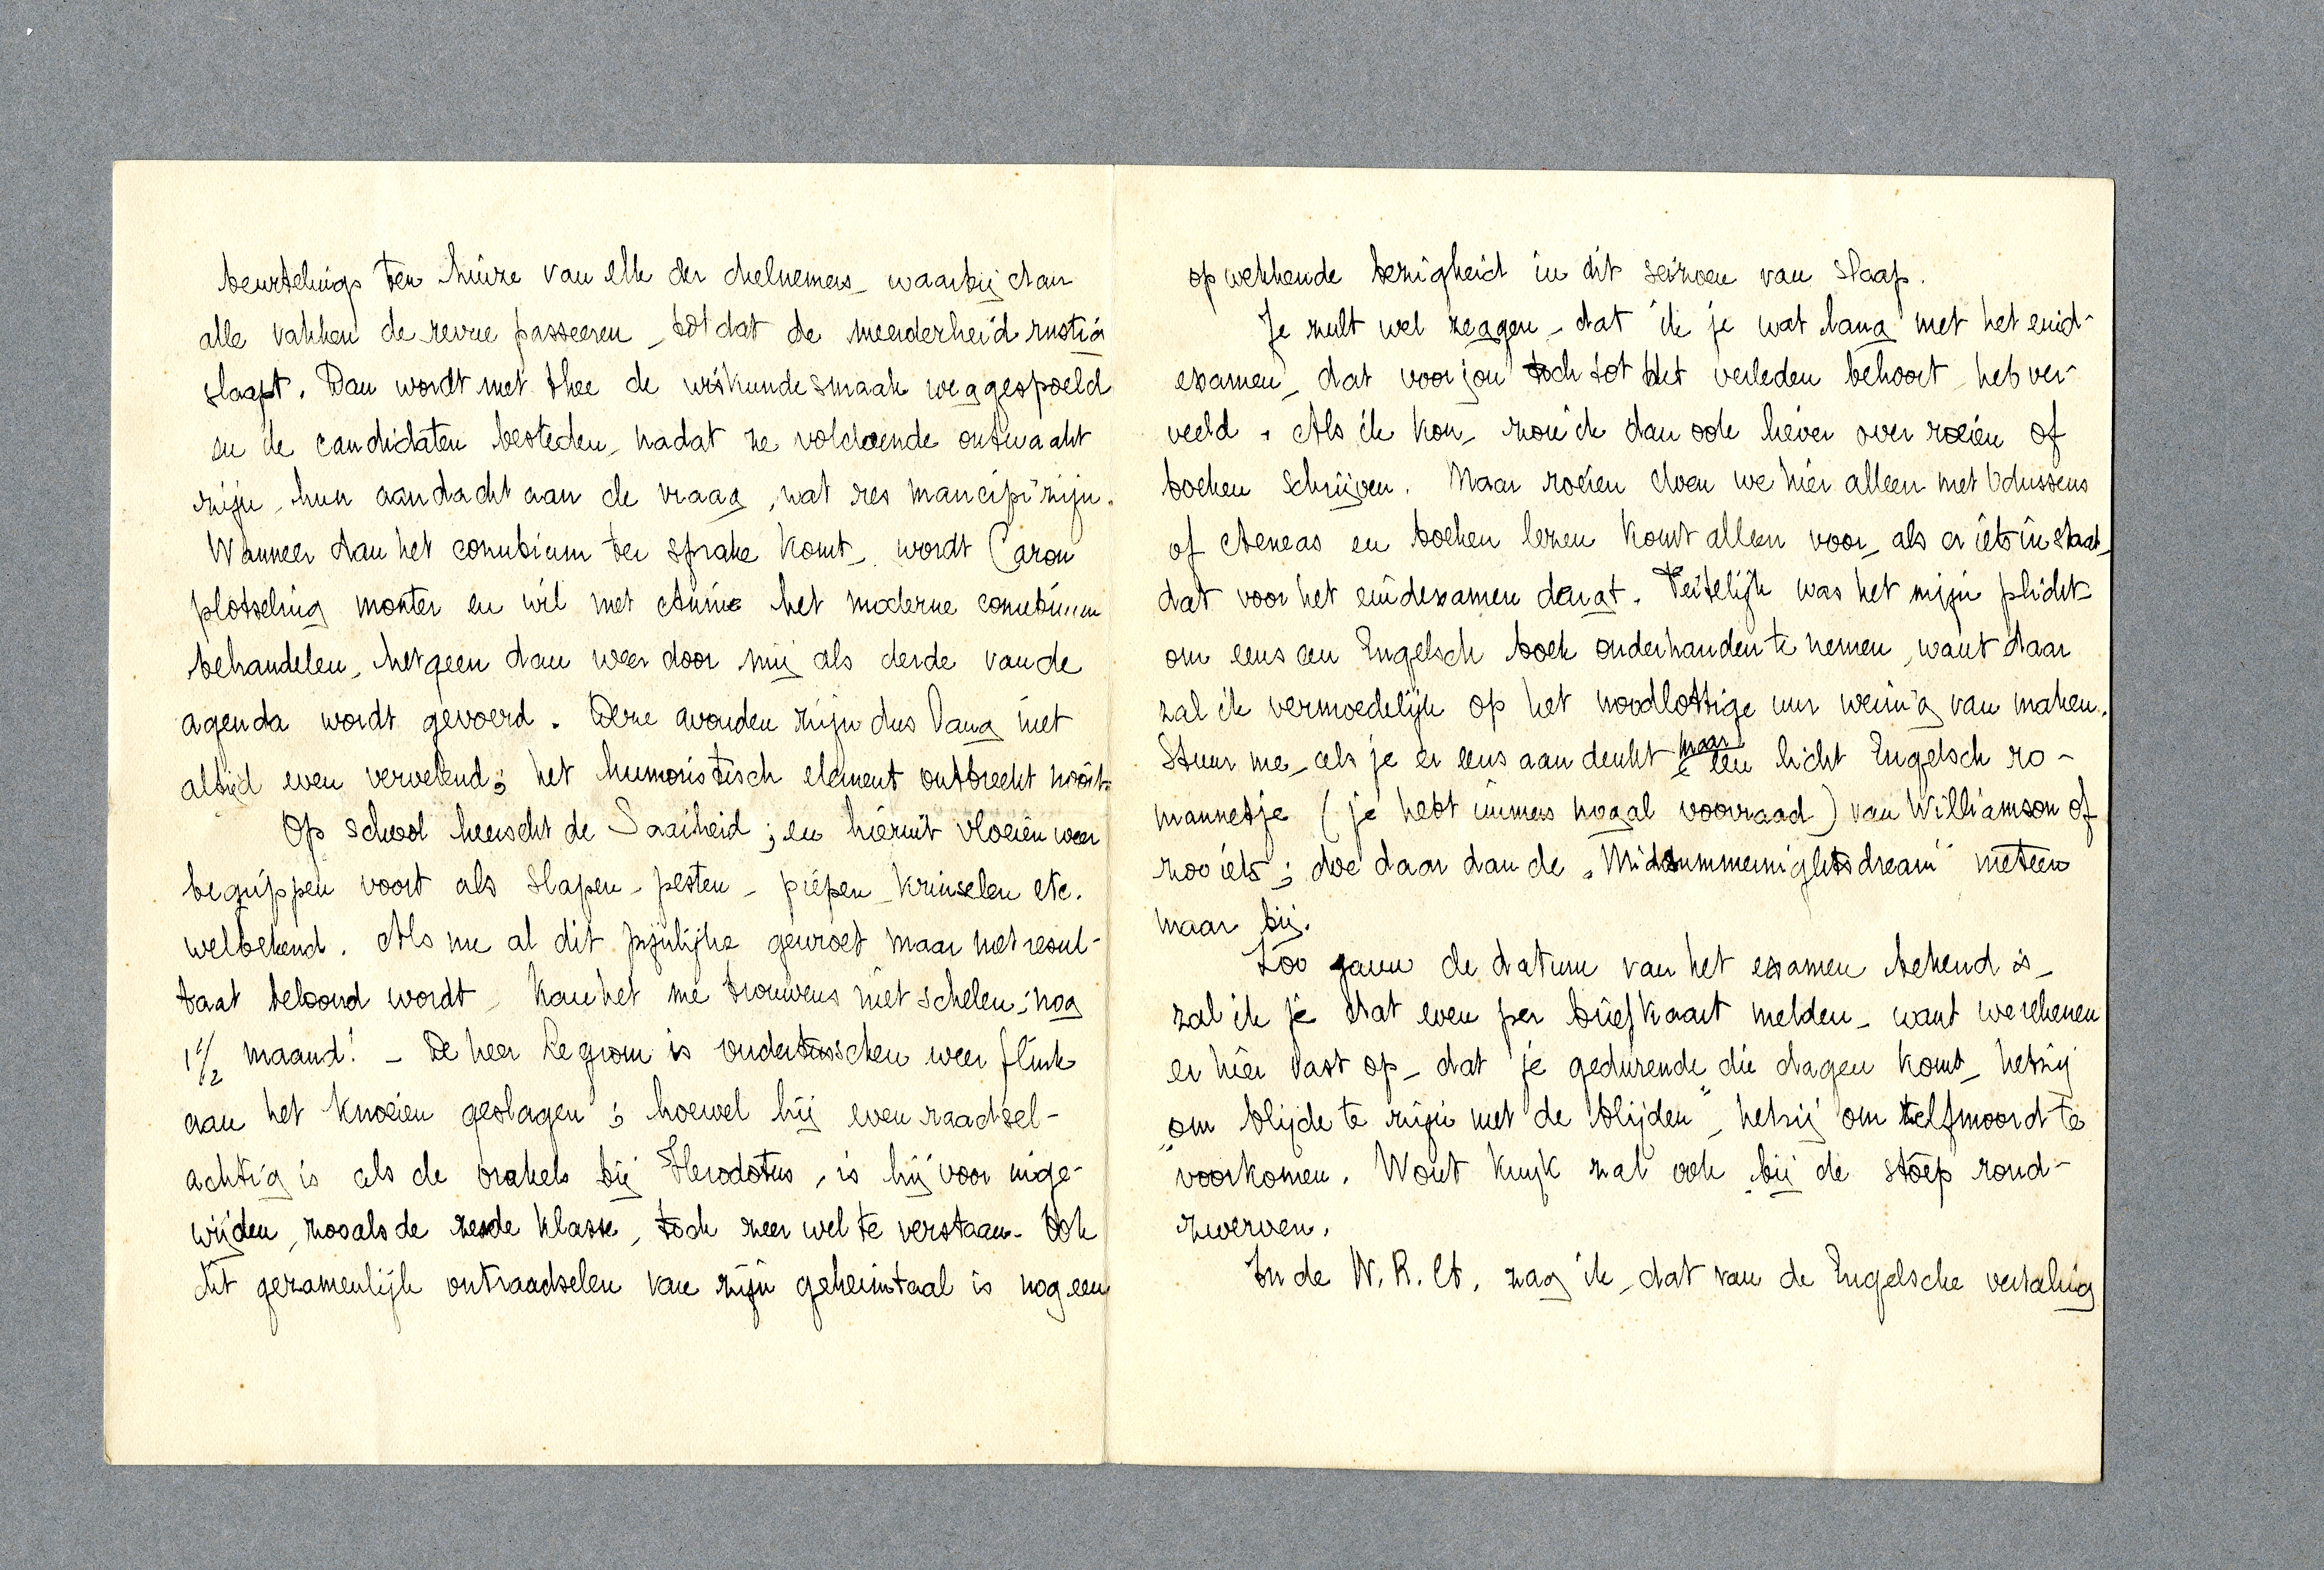 beurtelings ten huize van elk der deelnemers, waarbij dan
alle vakken de revue passeeren, totdat de meerderheid rustig
slaapt. Dan wordt met thee de wiskundesmaak weggespoeld
en de candidaten besteden, nadat ze voldoende ontwaakt
zijn, hun aandacht aan de vraag, wat res mancipi zijn.
Wanneer dan het conubium ter sprake komt, wordt Caron
plotseling monter en wil met Annie het moderne conubium
behandelen, hetgeen dan weer door mij als derde van de
agenda wordt gevoerd. Deze avonden zijn dus lang niet
altijd even vervelend; het humoristisch element ontbreekt nooit.
Op school heerscht de Saaiheid; en hieruit vloeien weer
begrippen voort als slapen, pesten, piepen, krinselen etc.
welbekend. Als nu al dit pijnlijke gewroet maar met resul-
taat beloond wordt, kan het me trouwens niet schelen; nog
1 1/2 maand! – De heer Legrom is ondertusschen weer flink
aan het knoeien geslagen; hoewel hij even raadsel-
achtig is als de orakels bij Herodotus, is hij voor inge-
wijden, zooals de zesde klasse, toch zeer wel te verstaan. Ook
dit gezamenlijk ontraadselen van zijn geheimtaal is nog een
opwekkende bezigheid in dit seizoen van slaap.
Je zult wel zeggen, dat ik je wat lang met het eind-
examen, dat voor jou toch tot het verleden behoort, heb ver-
veeld. Als ik kon, zou ik dan ook liever over roeien of
boeken schrijven. Maar roeien doen we hier alleen met Odusseus
of Aeneas en boeken lezen komt alleen voor, als er iets in staat,
dat voor het eindexamen deugt. Feitelijk was het mijn plicht
om eens een Engelsch boek onderhanden te nemen, want daar
zal ik vermoedelijk op het noodlottige uur weinig van maken.
Stuur me, als je er eens aan denkt maar een licht Engelsch ro-
mannetje (je hebt immers nogal voorraad) van Williamson of
zoo iets; doe daar dan de „Midsummernightsdream" meteen
maar bij.
Zoo gauw de datum van het examen bekend is,
zal ik je dat even per briefkaart melden, want we rekenen
er hier vast op, dat je gedurende die dagen komt, hetzij
„om blijde te zijn met de blijden", hetzij om zelfmoord te
voorkomen. Wout Kuyk zal ook bij de stoep rond-
zwerven.
In de N.R.Ct. zag ik, dat van de Engelsche vertaling